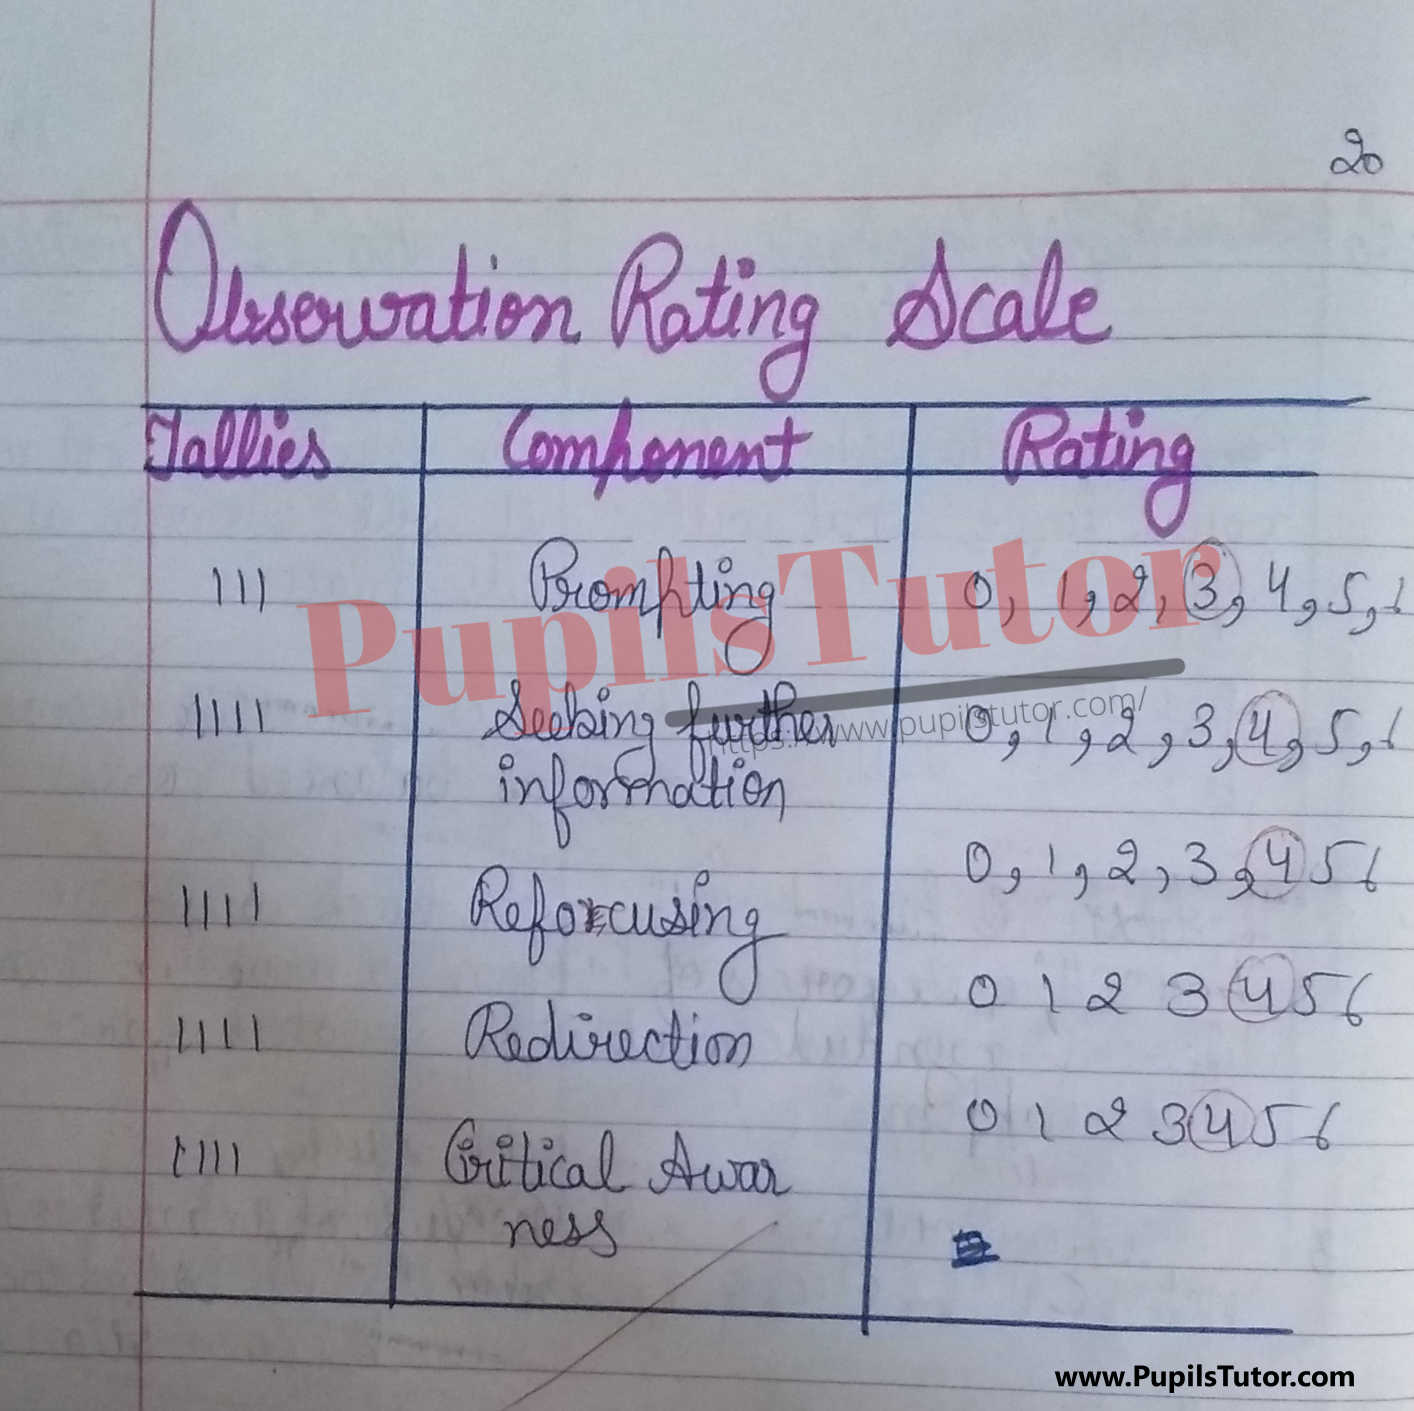 20
Observation Rating Scale
Tallies Component Rating
||| Prompting 0, 1, 2, 3, 4, 5, 6
PupilsTutor
|||| Seeking further 0, 1, 2, 3, 4, 5, 6
https://www.pupilstutor.com/
information
0, 1, 2, 3, 4 5 6
|||| Reforcusing
0 1 2 3 4 5 6
|||| Redirection
0 1 2 3 4 5 6
|||| Critical Awar
ness
www.PupilsTutor.com